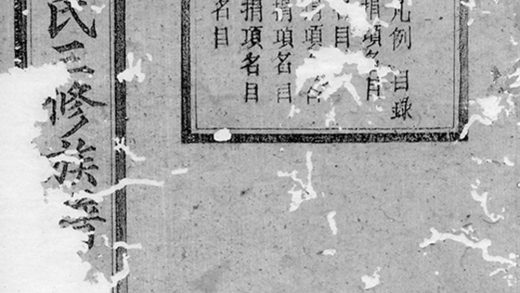 凡例 目錄
捐項名目
名目
項名
捐項名目
捐項名目
名目
氏三修族